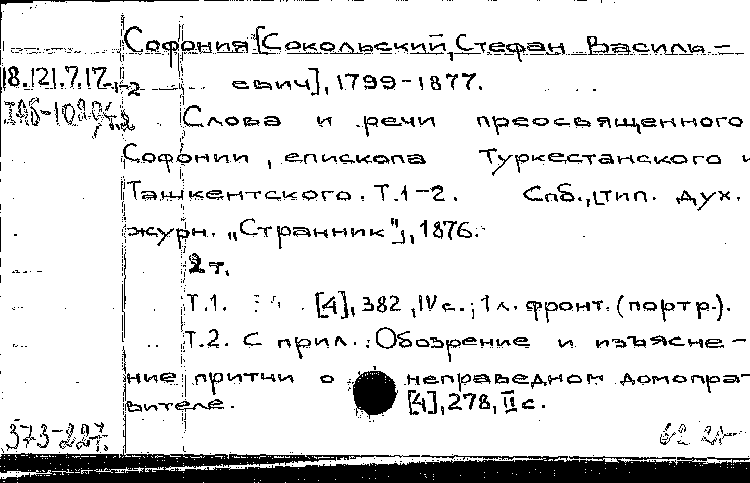 Софония [Сокольский, Стефан Василь-
18.121.7.17-1-2 евич], 1799-1877.
Слова и речи преосвященного
Софонии, епископа Туркестанского и
Ташкентского. Т.1-2. Спб., [тип. дух.
журн. „Странник"], 1876.
2 т.
Т.1. [4], 382, IV с.; 1 л. фронт. (портр.).
Т.2. С прил.: Обозрение и изъясне-
ние притчи о неправедном домопра-
вителе. [4], 278, II с.
373-227.